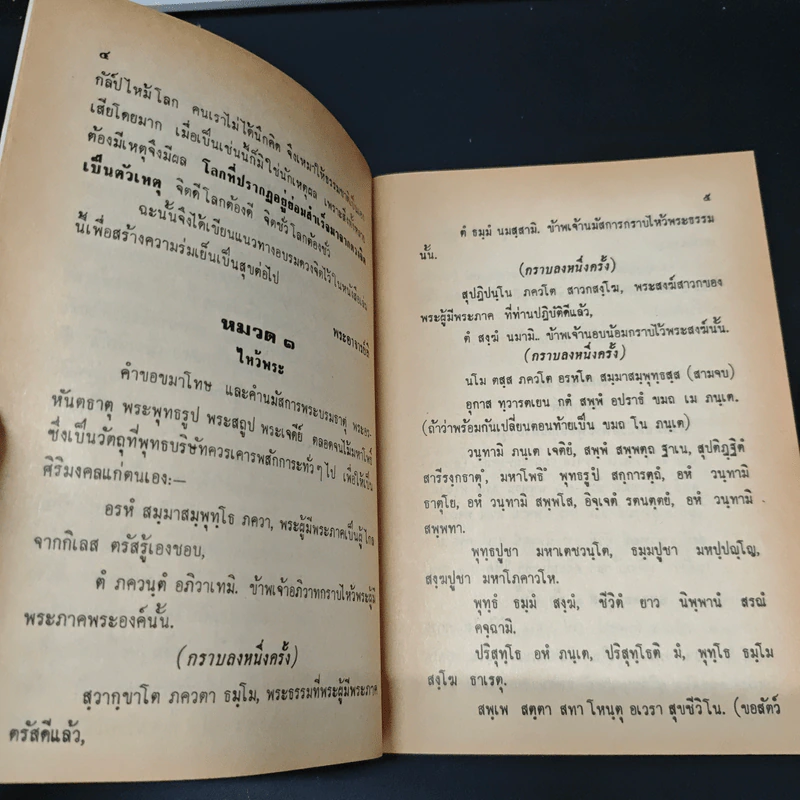 ๔
กัลป์ไหม้โลก คนเราไม่ได้นึกคิด จึงเหมาให้ธรรมชาติเป็น
เสียโดยมาก เมื่อเป็นเช่นนี้ก็มิใช่นักเหตุผล เพราะสิ่งทั้งหลาย
ต้องมีเหตุจึงมีผล โลกที่ปรากฏอยู่ย่อมสำเร็จมาจากดวงจิต
เป็นตัวเหตุ จิตดีโลกต้องดี จิตชั่วโลกต้องชั่ว
ฉะนั้นจึงได้เขียนแนวทางอบรมดวงจิตไว้ในหนังสือเล่ม
นี้เพื่อสร้างความร่มเย็นเป็นสุขต่อไป
พระอาจารย์ลี
หมวด ๑
ไหว้พระ
คำขอขมาโทษ และคำนมัสการพระบรมธาตุ พระอร-
หันตธาตุ พระพุทธรูป พระสถูป พระเจดีย์ ตลอดจนไม้มหาโพธิ์
ซึ่งเป็นวัตถุที่พุทธบริษัทควรเคารพสักการะทั่วๆ ไป เพื่อให้เป็น
ศิริมงคลแก่ตนเอง:—
อรหํ สมฺมาสมฺพุทฺโธ ภควา, พระผู้มีพระภาคเป็นผู้ไกล
จากกิเลส ตรัสรู้เองชอบ,
ตํ ภควนฺตํ อภิวาเทมิ. ข้าพเจ้าอภิวาทกราบไหว้พระผู้มี
พระภาคพระองค์นั้น.
(กราบลงหนึ่งครั้ง)
สฺวากฺขาโต ภควตา ธมฺโม, พระธรรมที่พระผู้มีพระภาค
ตรัสดีแล้ว,
๕
ตํ ธมฺมํ นมสฺสามิ. ข้าพเจ้านมัสการกราบไหว้พระธรรม
นั้น.
(กราบลงหนึ่งครั้ง)
สุปฏิปนฺโน ภควโต สาวกสงฺโฆ, พระสงฆ์สาวกของ
พระผู้มีพระภาค ที่ท่านปฏิบัติดีแล้ว,
ตํ สงฺฆํ นมามิ.. ข้าพเจ้านอบน้อมกราบไว้พระสงฆ์นั้น.
(กราบลงหนึ่งครั้ง)
นโม ตสฺส ภควโต อรหโต สมฺมาสมฺพุทฺธสฺส (สามจบ)
อุกาส ทฺวารตเยน กตํ สพฺพํ อปราธํ ขมถ เม ภนฺเต.
(ถ้าว่าพร้อมกันเปลี่ยนตอนท้ายเป็น ขมถ โน ภนฺเต)
วนฺทามิ ภนฺเต เจติยํ, สพฺพํ สพฺพตฺถ ฐาเน, สุปติฏฺฐิตํ
สารีรงฺกธาตุํ, มหาโพธึ พุทธรูปํ สกฺการตฺถํ, อหํ วนฺทามิ
ธาตุโย, อหํ วนฺทามิ สพฺพโส, อิจฺเจตํ รตนตฺตยํ, อหํ วนฺทามิ
สพฺพทา.
พุทฺธปูชา มหาเตชวนฺโต, ธมฺมปูชา มหปฺปญฺโญ,
สงฺฆปูชา มหาโภคาวโห.
พุทฺธํ ธมฺมํ สงฺฆํ, ชีวิตํ ยาว นิพฺพานํ สรณํ
คจฺฉามิ.
ปริสุทฺโธ อหํ ภนฺเต, ปริสุทฺโธติ มํ, พุทฺโธ ธมฺโม
สงฺโฆ ธาเรตุ.
สพฺเพ สตฺตา สทา โหนฺตุ อเวรา สุขชีวิโน. (ขอสัตว์